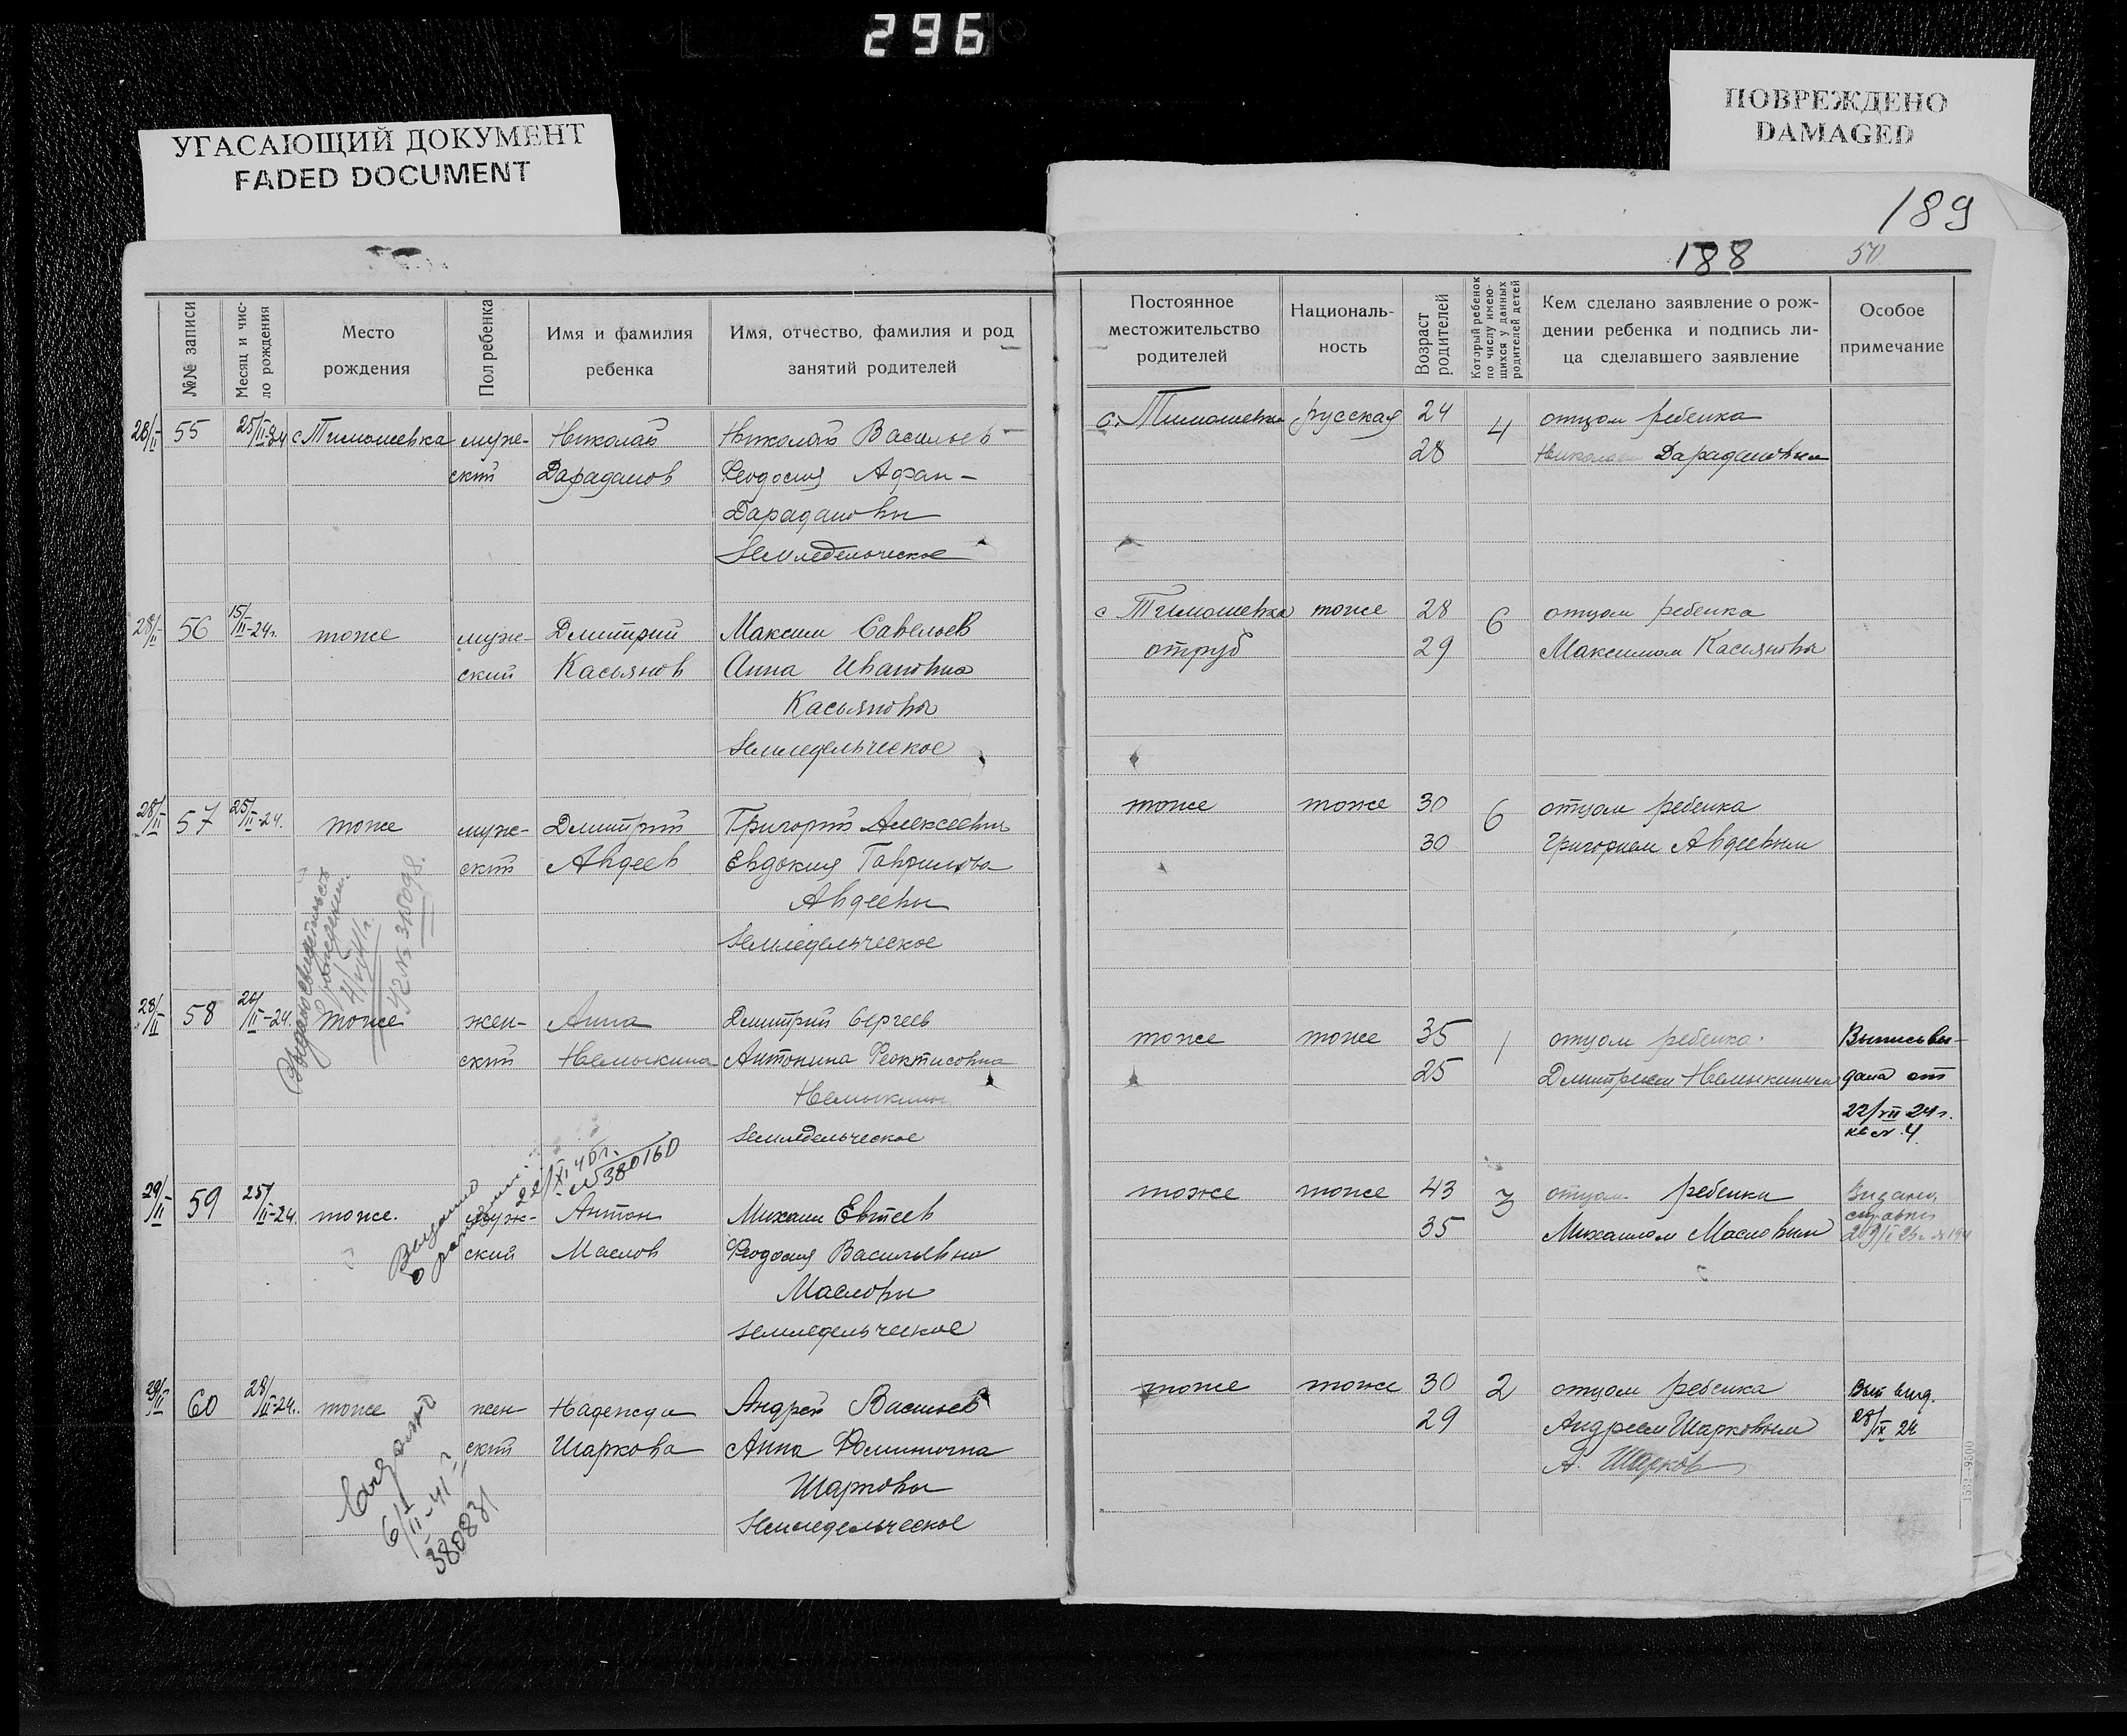 296
УГАСАЮЩИЙ ДОКУМЕНТ
FADED DOCUMENT
ПОВРЕЖДЕНО
DAMAGED
189
188
№№ записи
Месяц и чис-
ло рождения
Место
рождения
Пол ребенка
Имя и фамилия
ребенка
Имя, отчество, фамилия и род
занятий родителей
28/II 55 25/II-24 с Тимошевка муже- Николай Николай Васильев
ский Дараданов Феодосия Афан-
Дарадановы
Земледельческое
28/II 56 15/II-24г. тоже муж- Дмитрий Максим Савельев
ский Касьянов Анна Ивановна
Касьяновы
Земледельческое
28/II 57 25/II-24. тоже муж- Дмитрий Григорий Алексеевич
ский Авдеев Евдокия Гаврилова
Авдеевы
Земледельческое
Выдано свидетельство
о рождении
№ 315098.
28/II 58 /II-24. тоже жен- Анна Дмитрий Сергеев
ский Немыкина Антонина Феоктисовна
Немыкины
Земледельческое
Выдано
22/XI 40 г.
№ 380160
29/II 59 25/II-24. тоже. муж- Антон Михаил Евтеев
ский Маслов Феодосия Васильевна
Масловы
Земледельческое
29/II 60 28/II-24. тоже жен Надежда Андрей Васильев
ский Шаркова Анна Фоминична
Шарковы
Земледельческое
Выдано
6/II-41 г
380831
Постоянное
местожительство
родителей
Националь-
ность
Возраст
родителей
Который ребенок
по числу имею-
щихся у данных
родителей детей
Кем сделано заявление о рож-
дении ребенка и подпись ли-
ца сделавшего заявление
Особое
примечание
с. Тимошевка русская 24 4 отцом ребенка
28 Николаем Дарадановым
с Тимошевка тоже 28 6 отцом ребенка
отруб 29 Максимом Касьяновы
тоже тоже 30 6 отцом ребенка
30 Григорием Авдеевым
тоже тоже 35 1 отцом ребенка. Выпись вы-
25 Дмитрием Немыкиным дана от
22/VII 24 г.
4
тоже тоже 43 3 отцом ребенка Выдана
35 Михаилом Масловым справка
тоже тоже 30 2 отцом ребенка Вып выд.
29 Андреем Шарковым 28/IX 24
А. Шарков
153-9500